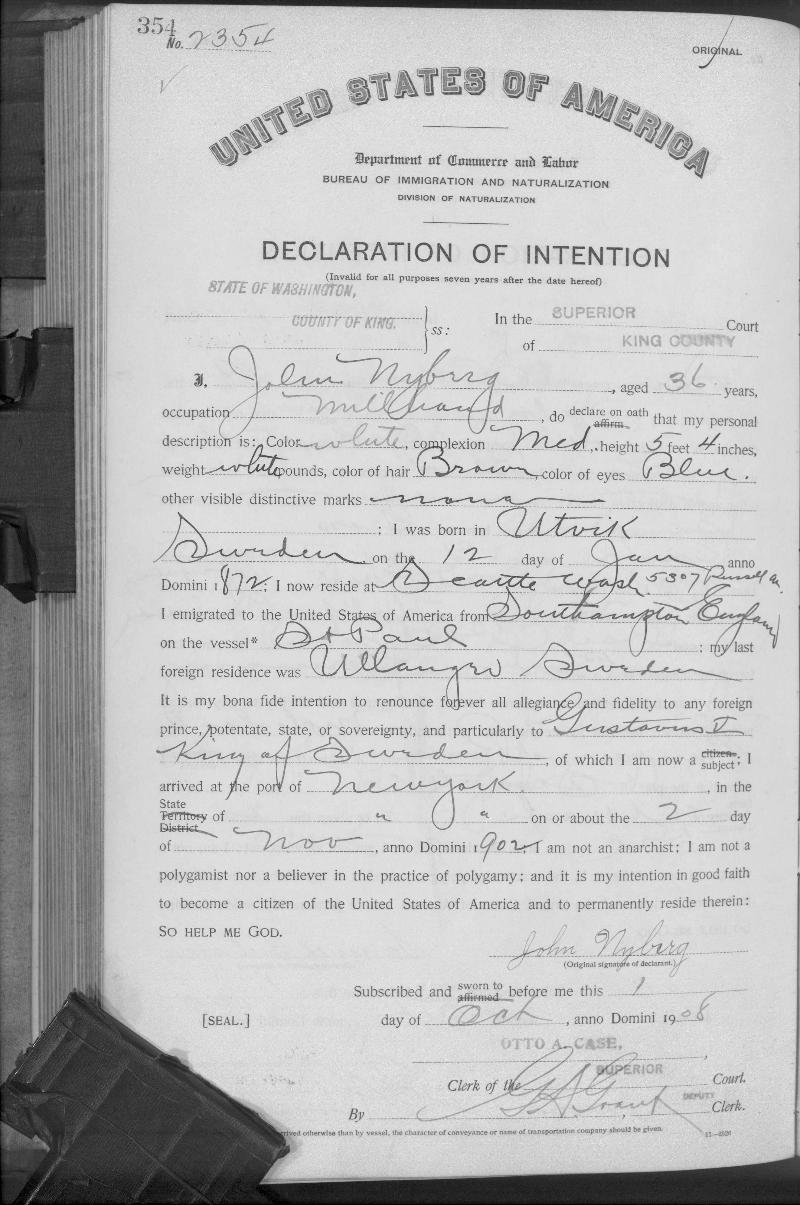 354
No. 2354
ORIGINAL
UNITED STATES OF AMERICA
Department of Commerce and Labor
BUREAU OF IMMIGRATION AND NATURALIZATION
DIVISION OF NATURALIZATION
DECLARATION OF INTENTION
(Invalid for all purposes seven years after the date hereof)
STATE OF WASHINGTON,
COUNTY OF KING. ss:
In the SUPERIOR Court
of KING COUNTY
I, John Nyberg, aged 36 years,
occupation Millhand, do declare on oath affirm that my personal
description is: Color white, complexion Med, height 5 feet 4 inches,
weight white pounds, color of hair Brown, color of eyes Blue.
other visible distinctive marks none
; I was born in Utvik
Sweden on the 12 day of Jan anno
Domini 1872; I now reside at Seattle Wash. 5307 Russell Av.
I emigrated to the United States of America from Southampton England
on the vessel* St Paul ; my last
foreign residence was Ullanger Sweden
It is my bona fide intention to renounce forever all allegiance and fidelity to any foreign
prince, potentate, state, or sovereignty, and particularly to Gustavus V
King of Sweden, of which I am now a citizen subject; I
arrived at the port of Newyork, in the
State Territory District of " " on or about the 2 day
of Nov, anno Domini 1902; I am not an anarchist; I am not a
polygamist nor a believer in the practice of polygamy; and it is my intention in good faith
to become a citizen of the United States of America and to permanently reside therein:
SO HELP ME GOD.
John Nyberg
(Original signature of declarant.)
Subscribed and sworn to affirmed before me this 1
[SEAL.] day of Oct, anno Domini 1908
OTTO A. CASE,
Clerk of the SUPERIOR Court.
By G. A. Grant, DEPUTY Clerk.
arrived otherwise than by vessel, the character of conveyance or name of transportation company should be given.